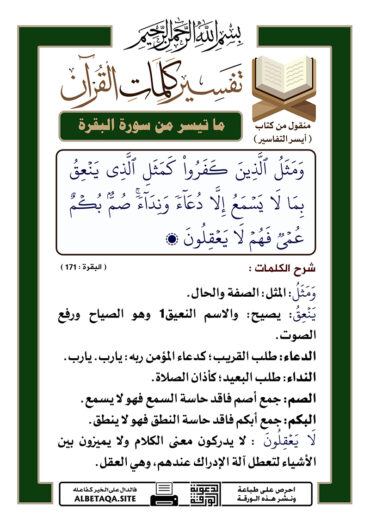 بِسْمِ اللَّهِ الرَّحْمَنِ الرَّحِيمِ
تفسير كلمات القرآن
ما تيسر من سورة البقرة
منقول من كتاب
( أيسر التفاسير )
وَمَثَلُ ٱلَّذِينَ كَفَرُوا۟ كَمَثَلِ ٱلَّذِى يَنْعِقُ
بِمَا لَا يَسْمَعُ إِلَّا دُعَآءً وَنِدَآءً ۚ صُمٌّۢ بُكْمٌ
عُمْىٌ فَهُمْ لَا يَعْقِلُونَ
شرح الكلمات :
( البقرة : 171 )
وَمَثَلُ: المثل : الصفة والحال.
يَنْعِقُ: يصيح: والاسم النعيق1 وهو الصياح ورفع
الصوت.
الدعاء: طلب القريب؛ كدعاء المؤمن ربه: يارب. يارب.
النداء: طلب البعيد؛ كأذان الصلاة.
الصم: جمع أصم فاقد حاسة السمع فهو لا يسمع.
البكم: جمع أبكم فاقد حاسة النطق فهو لا ينطق.
لَا يَعْقِلُونَ : لا يدركون معنى الكلام ولا يميزون بين
الأشياء لتعطل آلة الإدراك عندهم، وهي العقل.
احرص على طباعة
ونشر هذه الورقة
الدعوية
الورقة
فالدال على الخير كفاعله
ALBETAQA.SITE